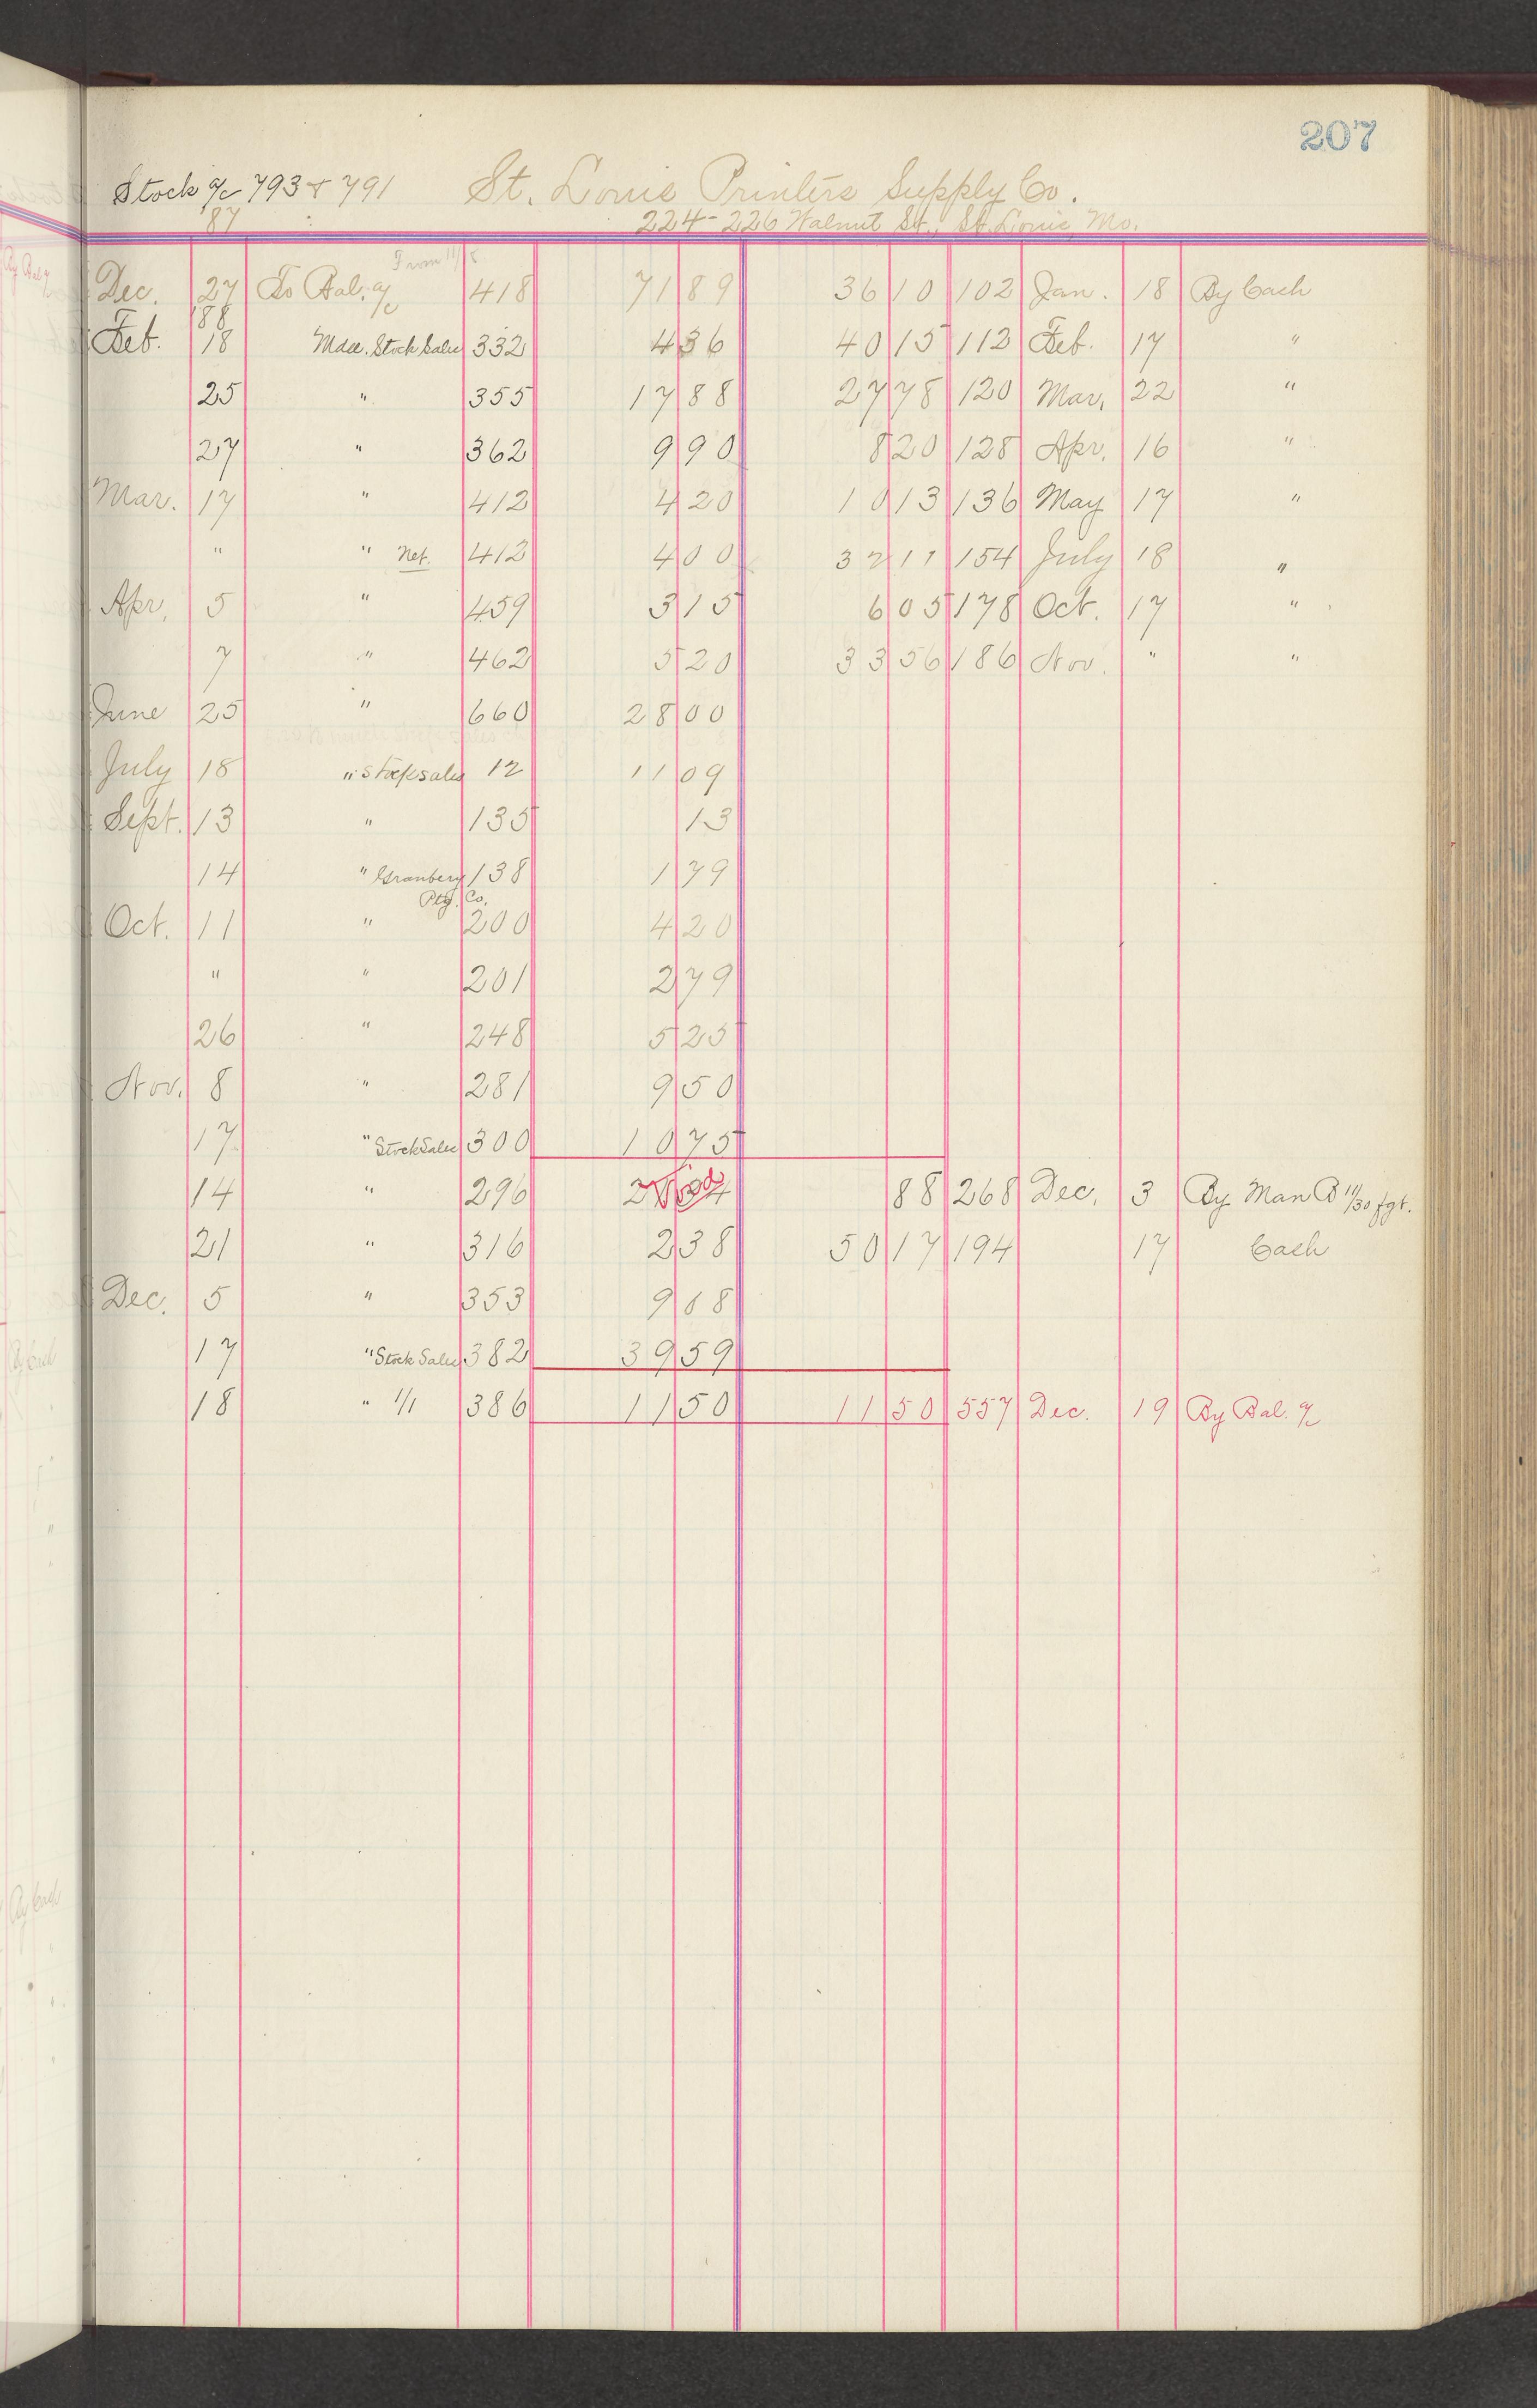 207
Stock a/c 793 & 791 St. Louis Printers Supply Co.
87 224-226 Walnut St., St. Louis, Mo.
From 11/8
Dec. 27 To Bal. a/c 418 71 89 36 10 102 Jan. 18 By Cash
88
Feb. 18 Mdse. Stock Sales 332 4 36 40 15 112 Feb. 17 "
25 " 355 17 88 27 78 120 Mar. 22 "
27 " 362 9 90 8 20 128 Apr. 16 "
Mar. 17 " 412 4 20 10 13 136 May 17 "
" " Net. 412 4 00 32 11 154 July 18 "
Apr. 5 " 459 3 15 6 05 178 Oct. 17 "
7 " 462 5 20 33 56 186 Nov. " "
June 25 " 660 28 00
July 18 " Stock sales 12 11 09
Sept. 13 " 135 13
14 " Granbery 138 1 79
Ptg. Co.
Oct. 11 " 200 4 20
" " 201 2 79
26 " 248 5 25
Nov. 8 " 281 9 50
17 " Stock Sales 300 10 75
14 " 296 Void 88 268 Dec. 3 By Man B 11/30 fgt.
21 " 316 2 38 50 17 194 17 Cash
Dec. 5 " 353 9 08
17 " Stock Sales 382 39 59
18 " 1/1 386 11 50 11 50 557 Dec. 19 By Bal. a/c